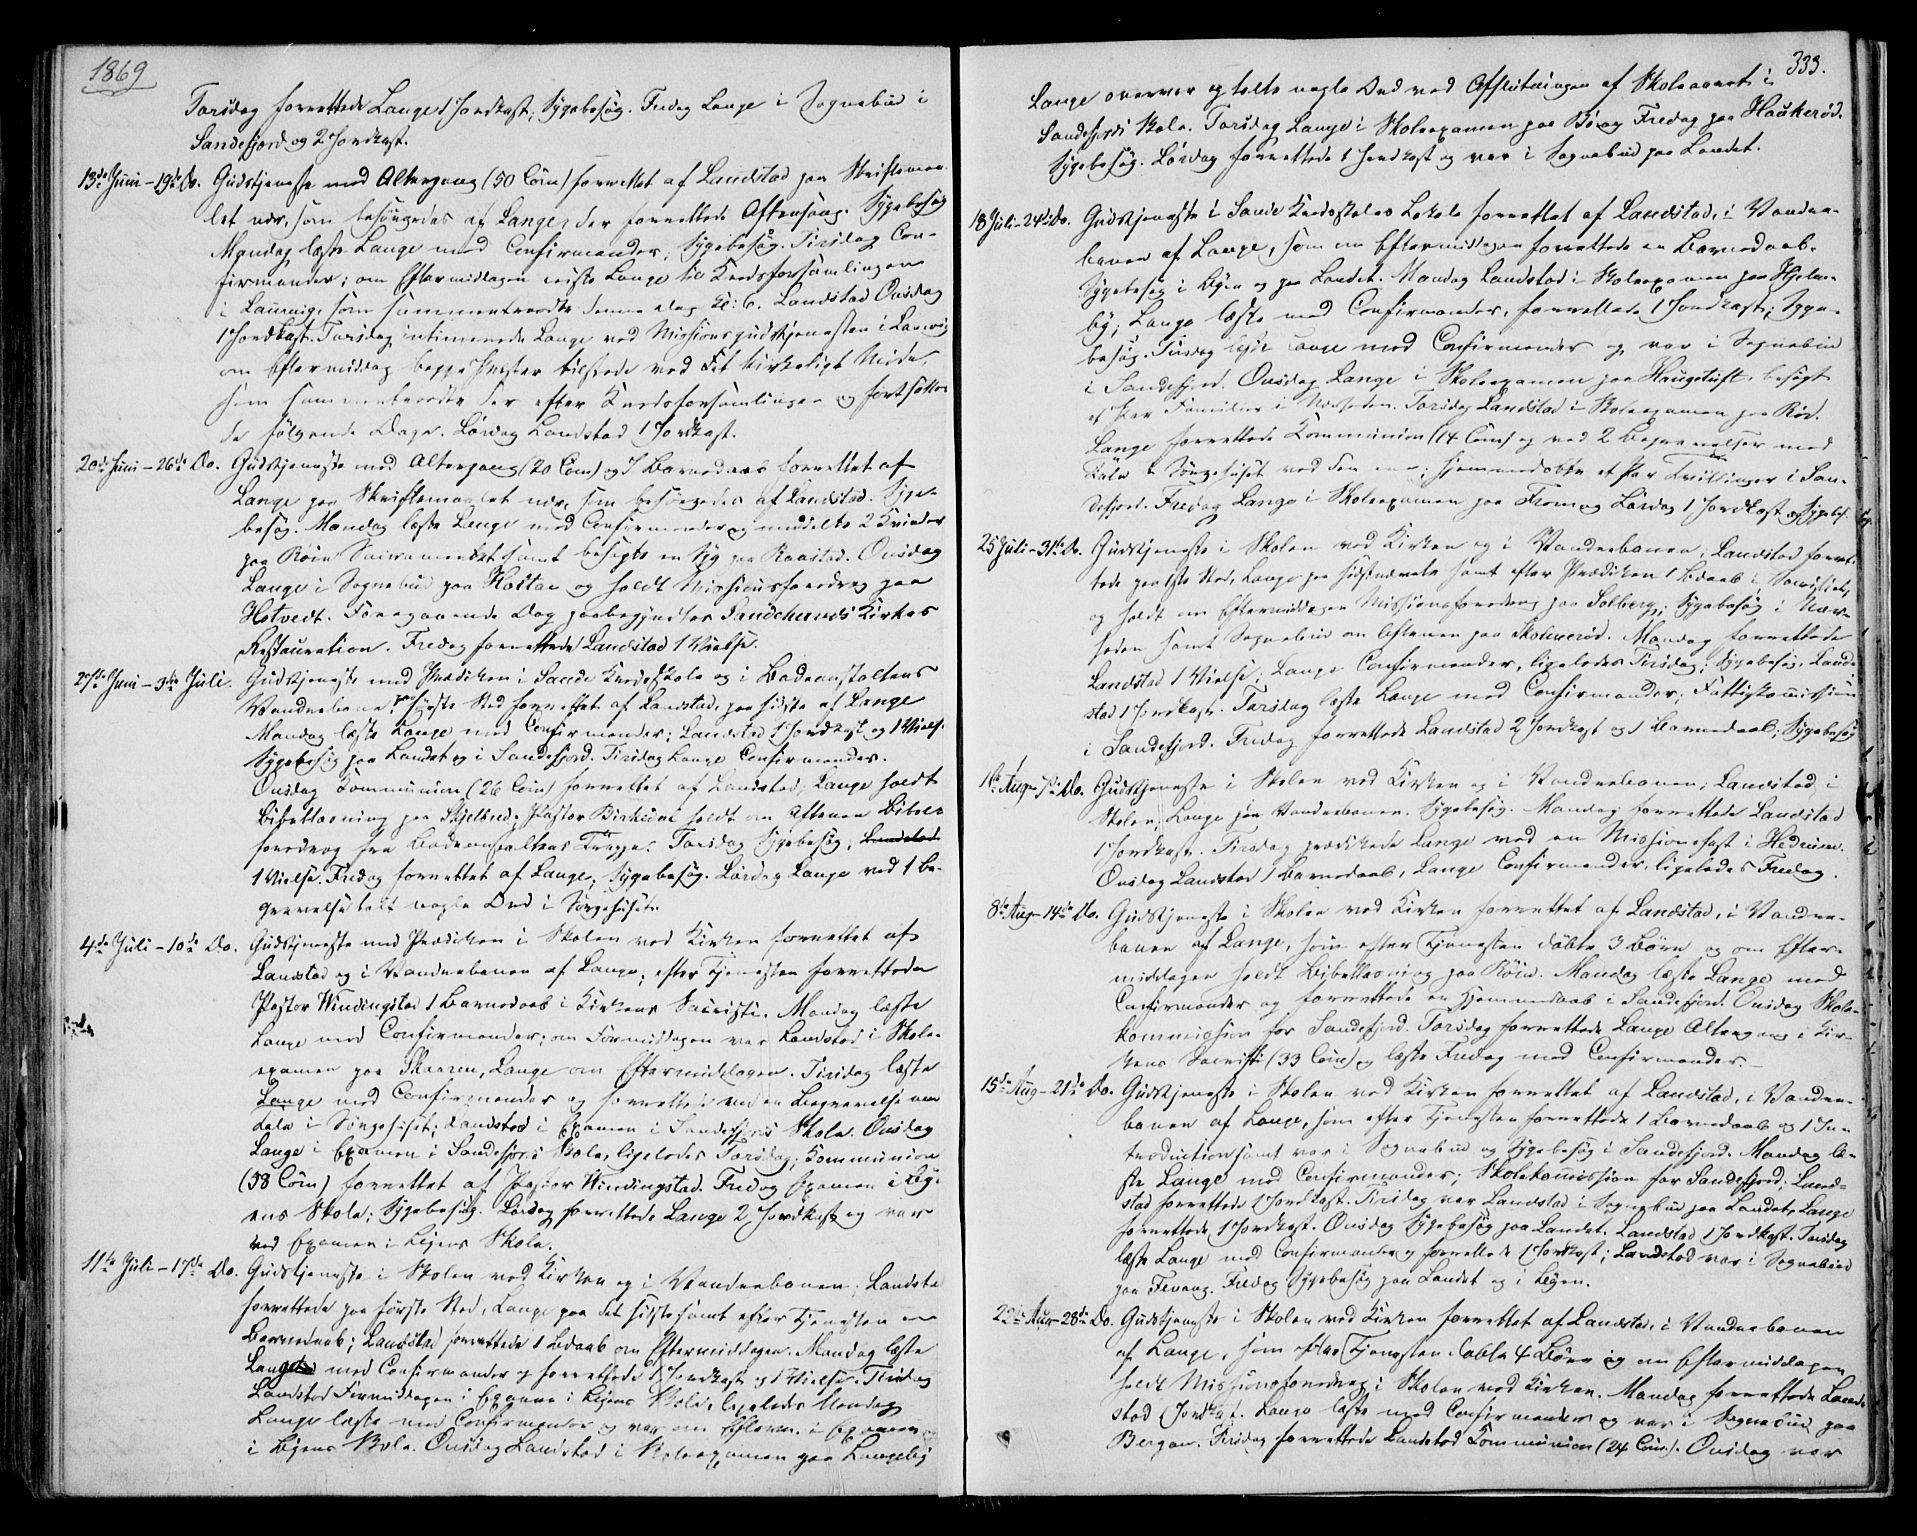 1869
Torsdag forrettede Lange 1 Jordkast, Sygebesøg. Fredag Lange i Sognebud i
Sandefjord og 2 Jordkast.
13de Juni – 19de Do. Gudstjeneste med Altergang (50 Com) forrettet af Landstad paa Skriftemaa-
let nær, som besørgedes af Lange, der forrettede Aftensang. Sygebesøg
Mandag læste Lange med Confirmander, Sygebesøg. Tirsdag Con-
firmander; om Eftermiddagen reiste Lange til Kredsforsamlingen
i Laurvig, som sammentraadte denne Dag Kl: 6. Landstad Onsdag
1 Jordkast. Torsdag intimerede Lange ved Missionsgudstjenesten i Laurvig
om Eftermiddag begge Præster tilstede ved Det kirkelige Møde
som sammentraadte der efter Kredsforsamlingen og fortsattes
de følgende Dage. Lørdag Landstad 1 Jordkast.
20de Juni – 26de Do. Gudstjeneste med Altergang (20 Com) og 7 Barnedaab forrettet af
Lange paa Skriftemaalet nær, som besørgedes af Landstad. Syge-
besøg. Mandag læste Lange med Confirmander og meddelte 2 Kvinder
paa Røin Sacramentet samt besøgte en Syg paa Raastad. Onsdag
Lange i Sognebud paa og holdt Missionsforedrag paa
Hotvedt. Foregaaende Dag paabegyndtes Sandeherreds Kirkes
Restauration. Fredag forrettede Landstad 1 Vielse.
27de Juni – 3die Juli. Gudstjeneste med Prædiken i Sande Kredsskole og i Badeanstaltens
Vandrebane, første Sted forrettet af Landstad, paa sidste af Lange
Mandag læste Lange med Confirmander; Landstad 1 Jordkast og 1 Vielse.
Sygebesøg paa Landet og i Sandefjord. Tirsdag Lange Confirmander.
Onsdag Communion (26 Com) forrettet af Landstad; Lange holdt
Bibellæsning paa Skjelbred; Pastor holdt om Aftenen Bibel-
foredrag fra Badeanstaltens Trappe. Torsdag Sygebesøg; Landstad
1 Vielse. Fredag forrettet af Lange; Sygebesøg. Lørdag Lange ved 1 Be-
gravelse talt nogle Ord i Sørgehuset.
4de Juli – 10de Do. Gudstjeneste med Prædiken i Skolen ved Kirken forrettet af
Landstad og i Vandrebanen af Lange; efter Tjenesten forrettede
Pastor Windingstad 1 Barnedaab i Kirkens Sacristi. Mandag læste
Lange med Confirmander; om Formiddagen var Landstad i Skole-
examen paa Skaaren, Lange om Eftermiddagen. Tirsdag læste
Lange med Confirmander og forrettede ved en Begravelse en
Tale i Sørgehuset; Landstad i Examen i Sandefjords Skole. Onsdag
Lange i Examen i Sandefjords Skole, ligeledes Torsdag; Kommunion
(38 Com) forrettet af Pastor Windingstad. Fredag Examen i By-
ens Skole; Sygebesøg. Lørdag forrettede Lange 2 Jordkast og var
ved Examen i Byens Skole.
11te Juli – 17de Do. Gudstjeneste i Skolen ved Kirken og i Vandrebanen; Landstad
forrettede paa første Sted, Lange paa det sidste samt efter Tjenesten en
Barnedaab; Landstad forrettede 1 Bdaab om Eftermiddagen. Mandag læste
Lange med Confirmander og forrettede 1 Jordkast og 1 Vielse. Tirsdag
Landstad Formiddagen i Examen i Byens Skole, ligeledes Mandag
Lange læste med Confirmander og var om Efterm. i Examen
i Byens Skole. Onsdag Landstad i Skoleexamen paa Langeby
333.
Lange overvar og talte nogle Ord ved Afslutningen af Skoleaaret i
Sandefjords Skole. Torsdag Lange i Skoleexamen paa Fredag paa Haukerød.
Sygebesøg. Lørdag forrettede 1 Jordkast og var i Sognebud paa Landet.
18 Juli – 24de Do. Gudstjeneste i Sande Kredsskoles Lokale forrettet af Landstad, i Vandre-
banen af Lange, som om Eftermiddagen forrettede en Barnedaab.
Sygebesøg i Byen og paa Landet. Mandag Landstad i Skoleexamen paa Hjelm-
by; Lange læste med Confirmander, forrettede 1 Jordkast; Syge-
besøg. Tirsdag læste Lange med Confirmander og var i Sognebud
i Sandefjord. Onsdag Lange i Skoleexamen paa Haugetuft, besøgt
et Par Familier i Nærheden. Torsdag Landstad i Skoleexamen paa Rød.
Lange forrettede Kommunion (14 Com) og ved 2 Begravelser med
Tale i Sørgehuset ved den ene; hjemmedøbte et Par Tvillinger i San-
defjord. Fredag Lange i Skoleexamen paa Lørdag 1 Jordkast og Sygebes.
25 Juli – 31te Do. Gudstjeneste i Skolen ved Kirken og i Vandrebanen; Landstad forret-
tede paa 1ste Sted, Lange paa sidstnævnte samt efter Prædiken 1 Bdaab i Sacristiet,
og holdt om Eftermiddagen Missionsforedrag paa Solberg; Sygebesøg i Nær-
heden samt Sognebud om Aftenen paa Skolmerød. Mandag forrettede
Landstad 1 Vielse; Lange Confirmander, ligeledes Tirsdag; Sygebesøg, Land-
stad 1 Jordkast. Torsdag læste Lange med Confirmander; Fattigkommission
i Sandefjord. Fredag forrettede Landstad 2 Jordkast og 1 Barnedaab; Sygebesøg
1te Aug – 7de Do. Gudstjeneste i Skolen ved Kirken og i Vandrebanen; Landstad i
Skolen, Lange paa Vandrebanen. Sygebesøg. Mandag forrettede Landstad
1 Jordkast. Tirsdag prædikede Lange ved en Missionsfest i Hedrum.
Onsdag Landstad 1 Barnedaab, Lange Confirmander, ligeledes Fredag.
8de Aug – 14de Do. Gudstjeneste i Skolen ved Kirken forrettet af Landstad, i Vandre-
banen af Lange, som efter Tjenesten døbte 3 Børn og om Efter-
middagen holdt Bibellæsning paa Røin. Mandag læste Lange med
Confirmander og forrettede en Hjemmedaab i Sandefjord. Onsdag Skole-
kommission for Sandefjord. Torsdag forrettede Lange Altergang i Kir-
kens Sacristi (33 Com) og læste Fredag med Confirmander.
15de Aug – 21de Do. Gudstjeneste i Skolen ved Kirken forrettet af Landstad, i Vandre-
banen af Lange, som efter Tjenesten forrettede 1 Barnedaab og 1 In-
troduction samt var i Sognebud og Sygebesøg i Sandefjord. Mandag læ-
ste Lange med Confirmander; Skolekomission for Sandefjord; Land-
stad forrettede 1 Jordkast. Tirsdag var Landstad i Sognebud paa Landet, Lange
forrettede 1 Jordkast. Onsdag Sygebesøg paa Landet. Landstad 1 Jordkast. Torsdag
læste Lange med Confirmander og forrettede 1 Jordkast; Landstad var i Sognebud
paa Fevang. Fredag Sygebesøg paa Landet og i Byen.
22de Aug – 28de Do. Gudstjeneste i Skolen ved Kirken forrettet af Landstad, i Vandrebanen
af Lange, som efter Tjenesten døbte 4 Børn og om Eftermiddagen
holdt Missionsforedrag i Skolen ved Kirken. Mandag forrettede Land-
stad 1 Jordkast. Lange læste med Confirmander og var i Sognebud paa
Bergan. Tirsdag forrettede Landstad Kommunion (24 Com). Onsdag var